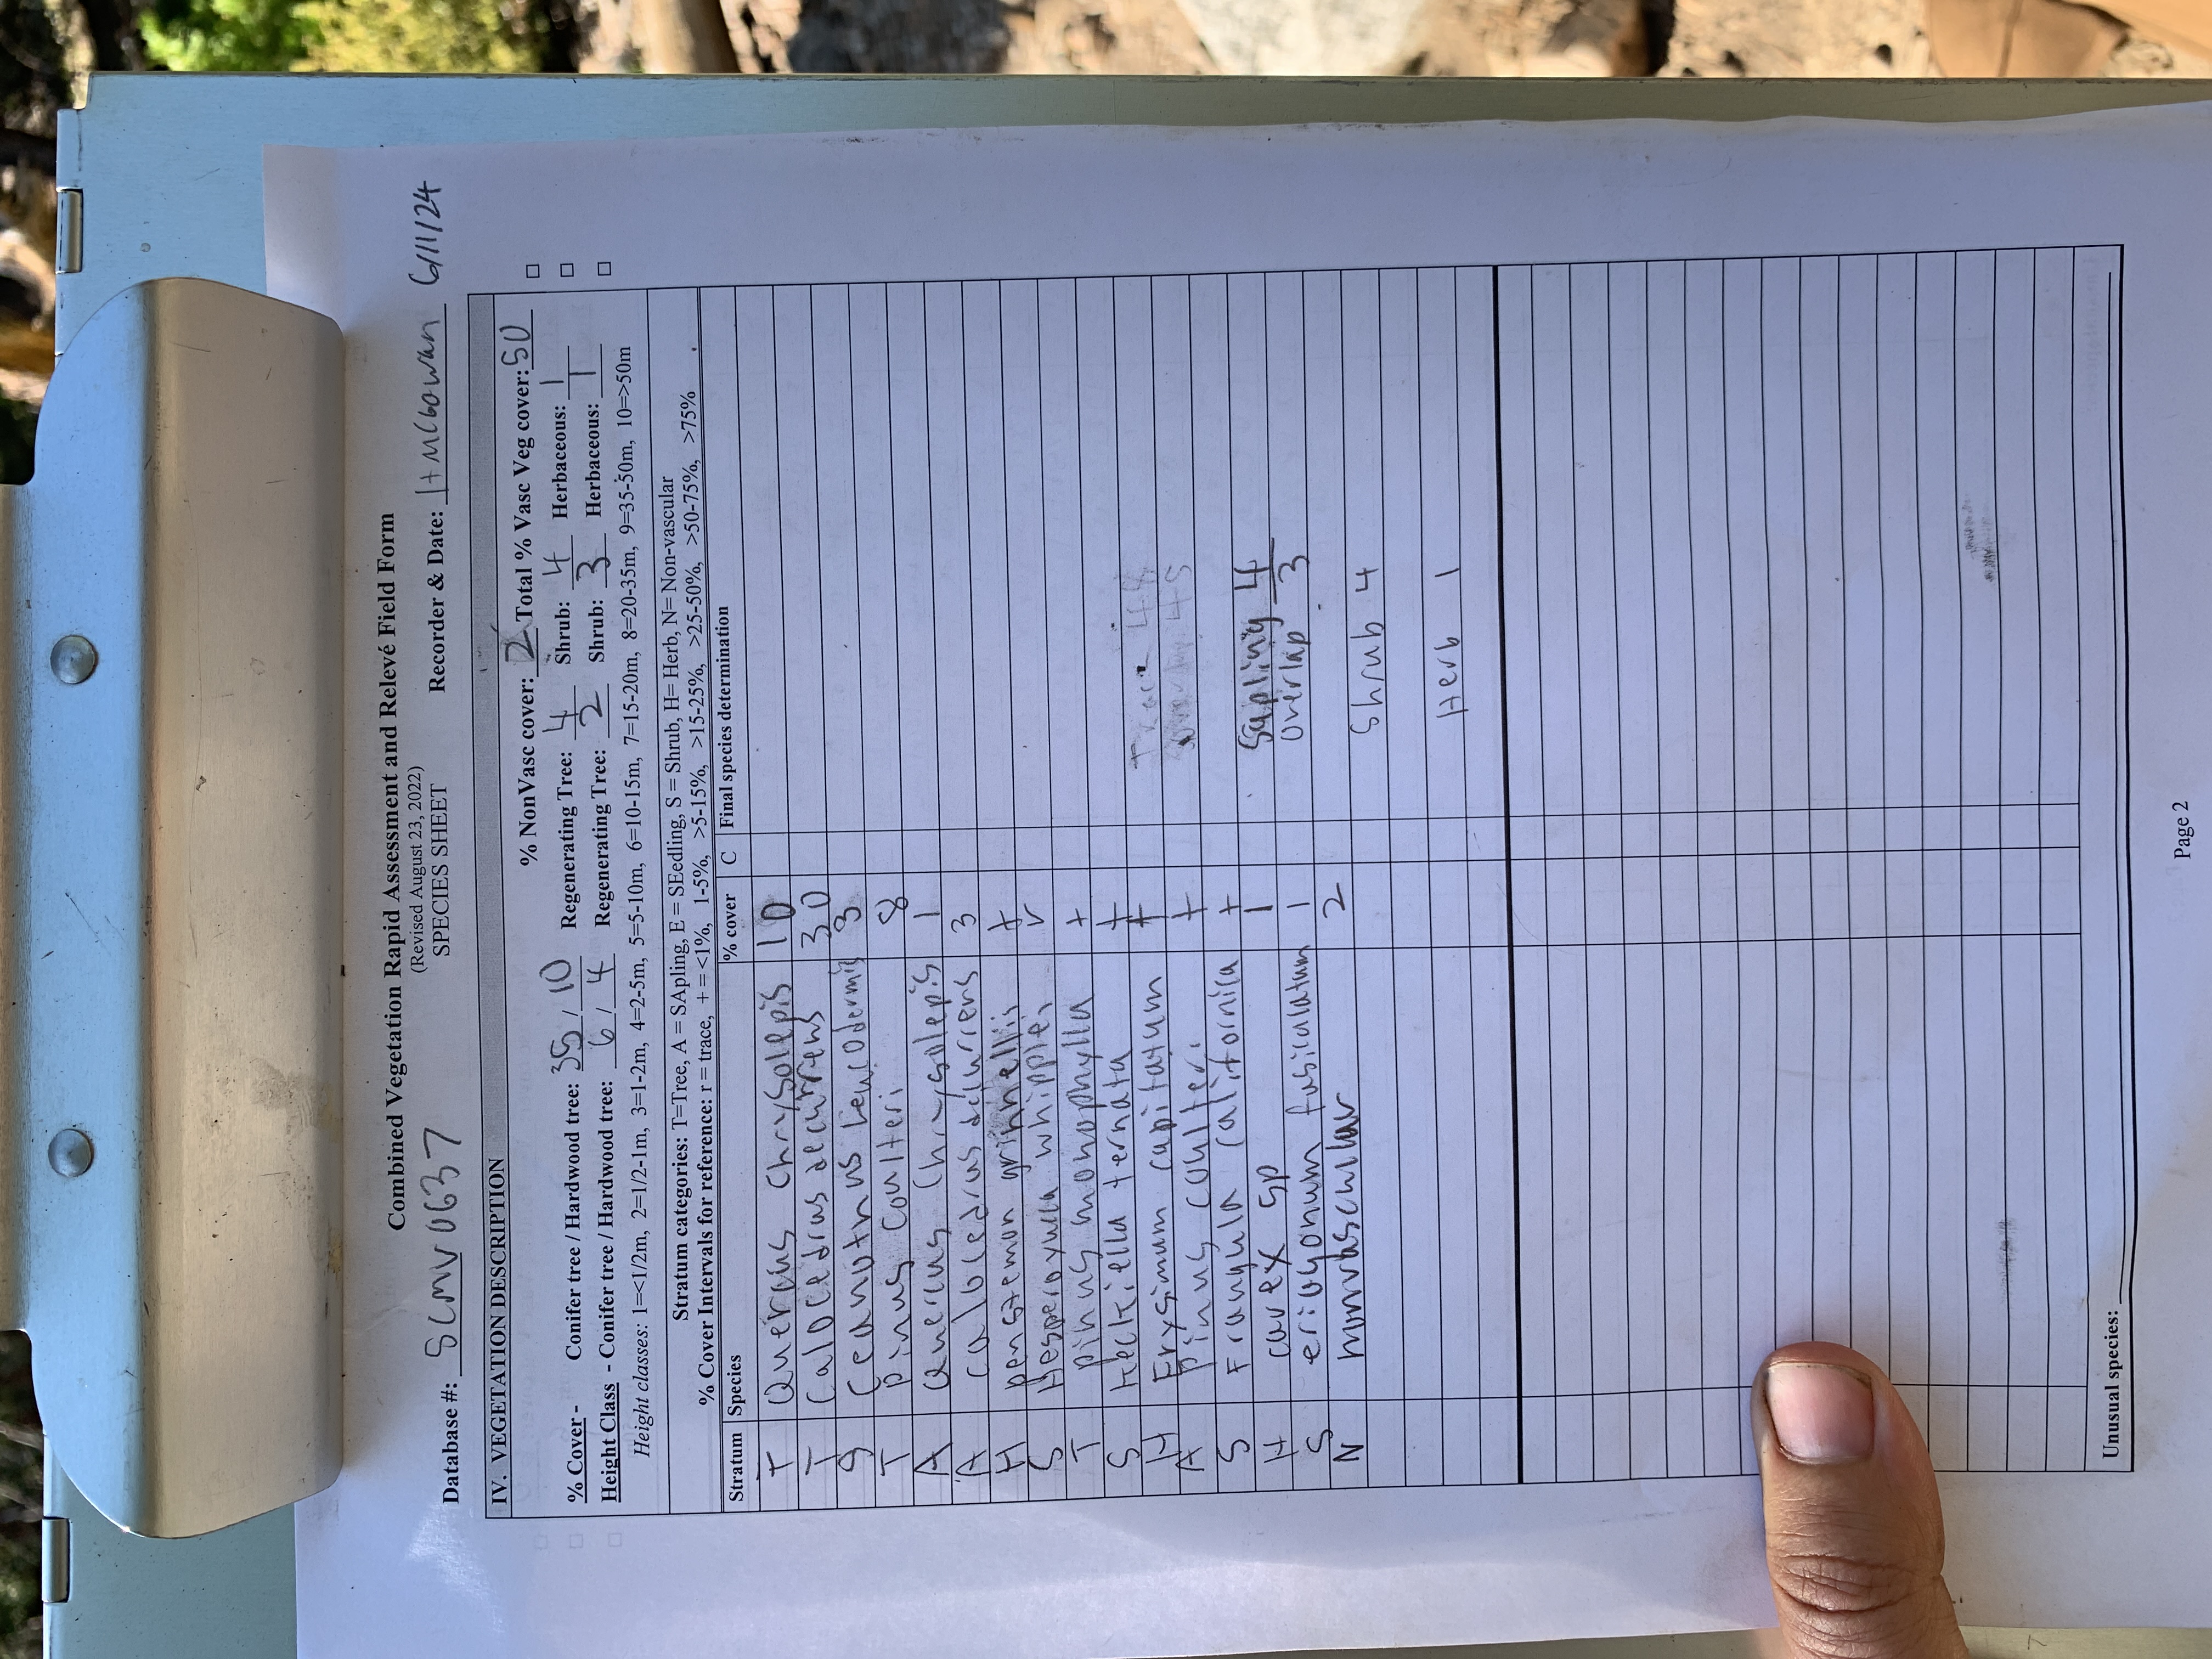 Combined Vegetation Rapid Assessment and Relevé Field Form
(Revised August 23, 2022)
SPECIES SHEET
Database #: SCMV0637 Recorder & Date: H McGowan 6/1/24
IV. VEGETATION DESCRIPTION
% NonVasc cover: 2 Total % Vasc Veg cover: 50
% Cover - Conifer tree / Hardwood tree: 35 / 10 Regenerating Tree: 4 Shrub: 4 Herbaceous: 1
Height Class - Conifer tree / Hardwood tree: 6 / 4 Regenerating Tree: 2 Shrub: 3 Herbaceous: 1
Height classes: 1=<1/2m, 2=1/2-1m, 3=1-2m, 4=2-5m, 5=5-10m, 6=10-15m, 7=15-20m, 8=20-35m, 9=35-50m, 10=>50m
Stratum categories: T=Tree, A = SApling, E = SEedling, S = Shrub, H= Herb, N= Non-vascular
% Cover Intervals for reference: r = trace, + = <1%, 1-5%, >5-15%, >15-25%, >25-50%, >50-75%, >75%
Stratum Species % cover C Final species determination
T Quercus Chrysolepis 10
T Calocedrus decurrens 30
S Ceanothus leucodermis 3
T pinus Coulteri 8
A Quercus Chrysolepis 1
A calocedrus decurrens 3
H penstemon grinnellii +
S Hesperoyucca whipplei r
T pinus monophylla +
S Keckiella ternata +
H Erysimum capitatum +
A pinus coulteri +
S Frangula californica +
H carex sp 1 Sapling 4
S eriogonum fusiculatum 1 overlap 3
N nonvascular 2
Shrub 4
Herb 1
Unusual species:
Page 2